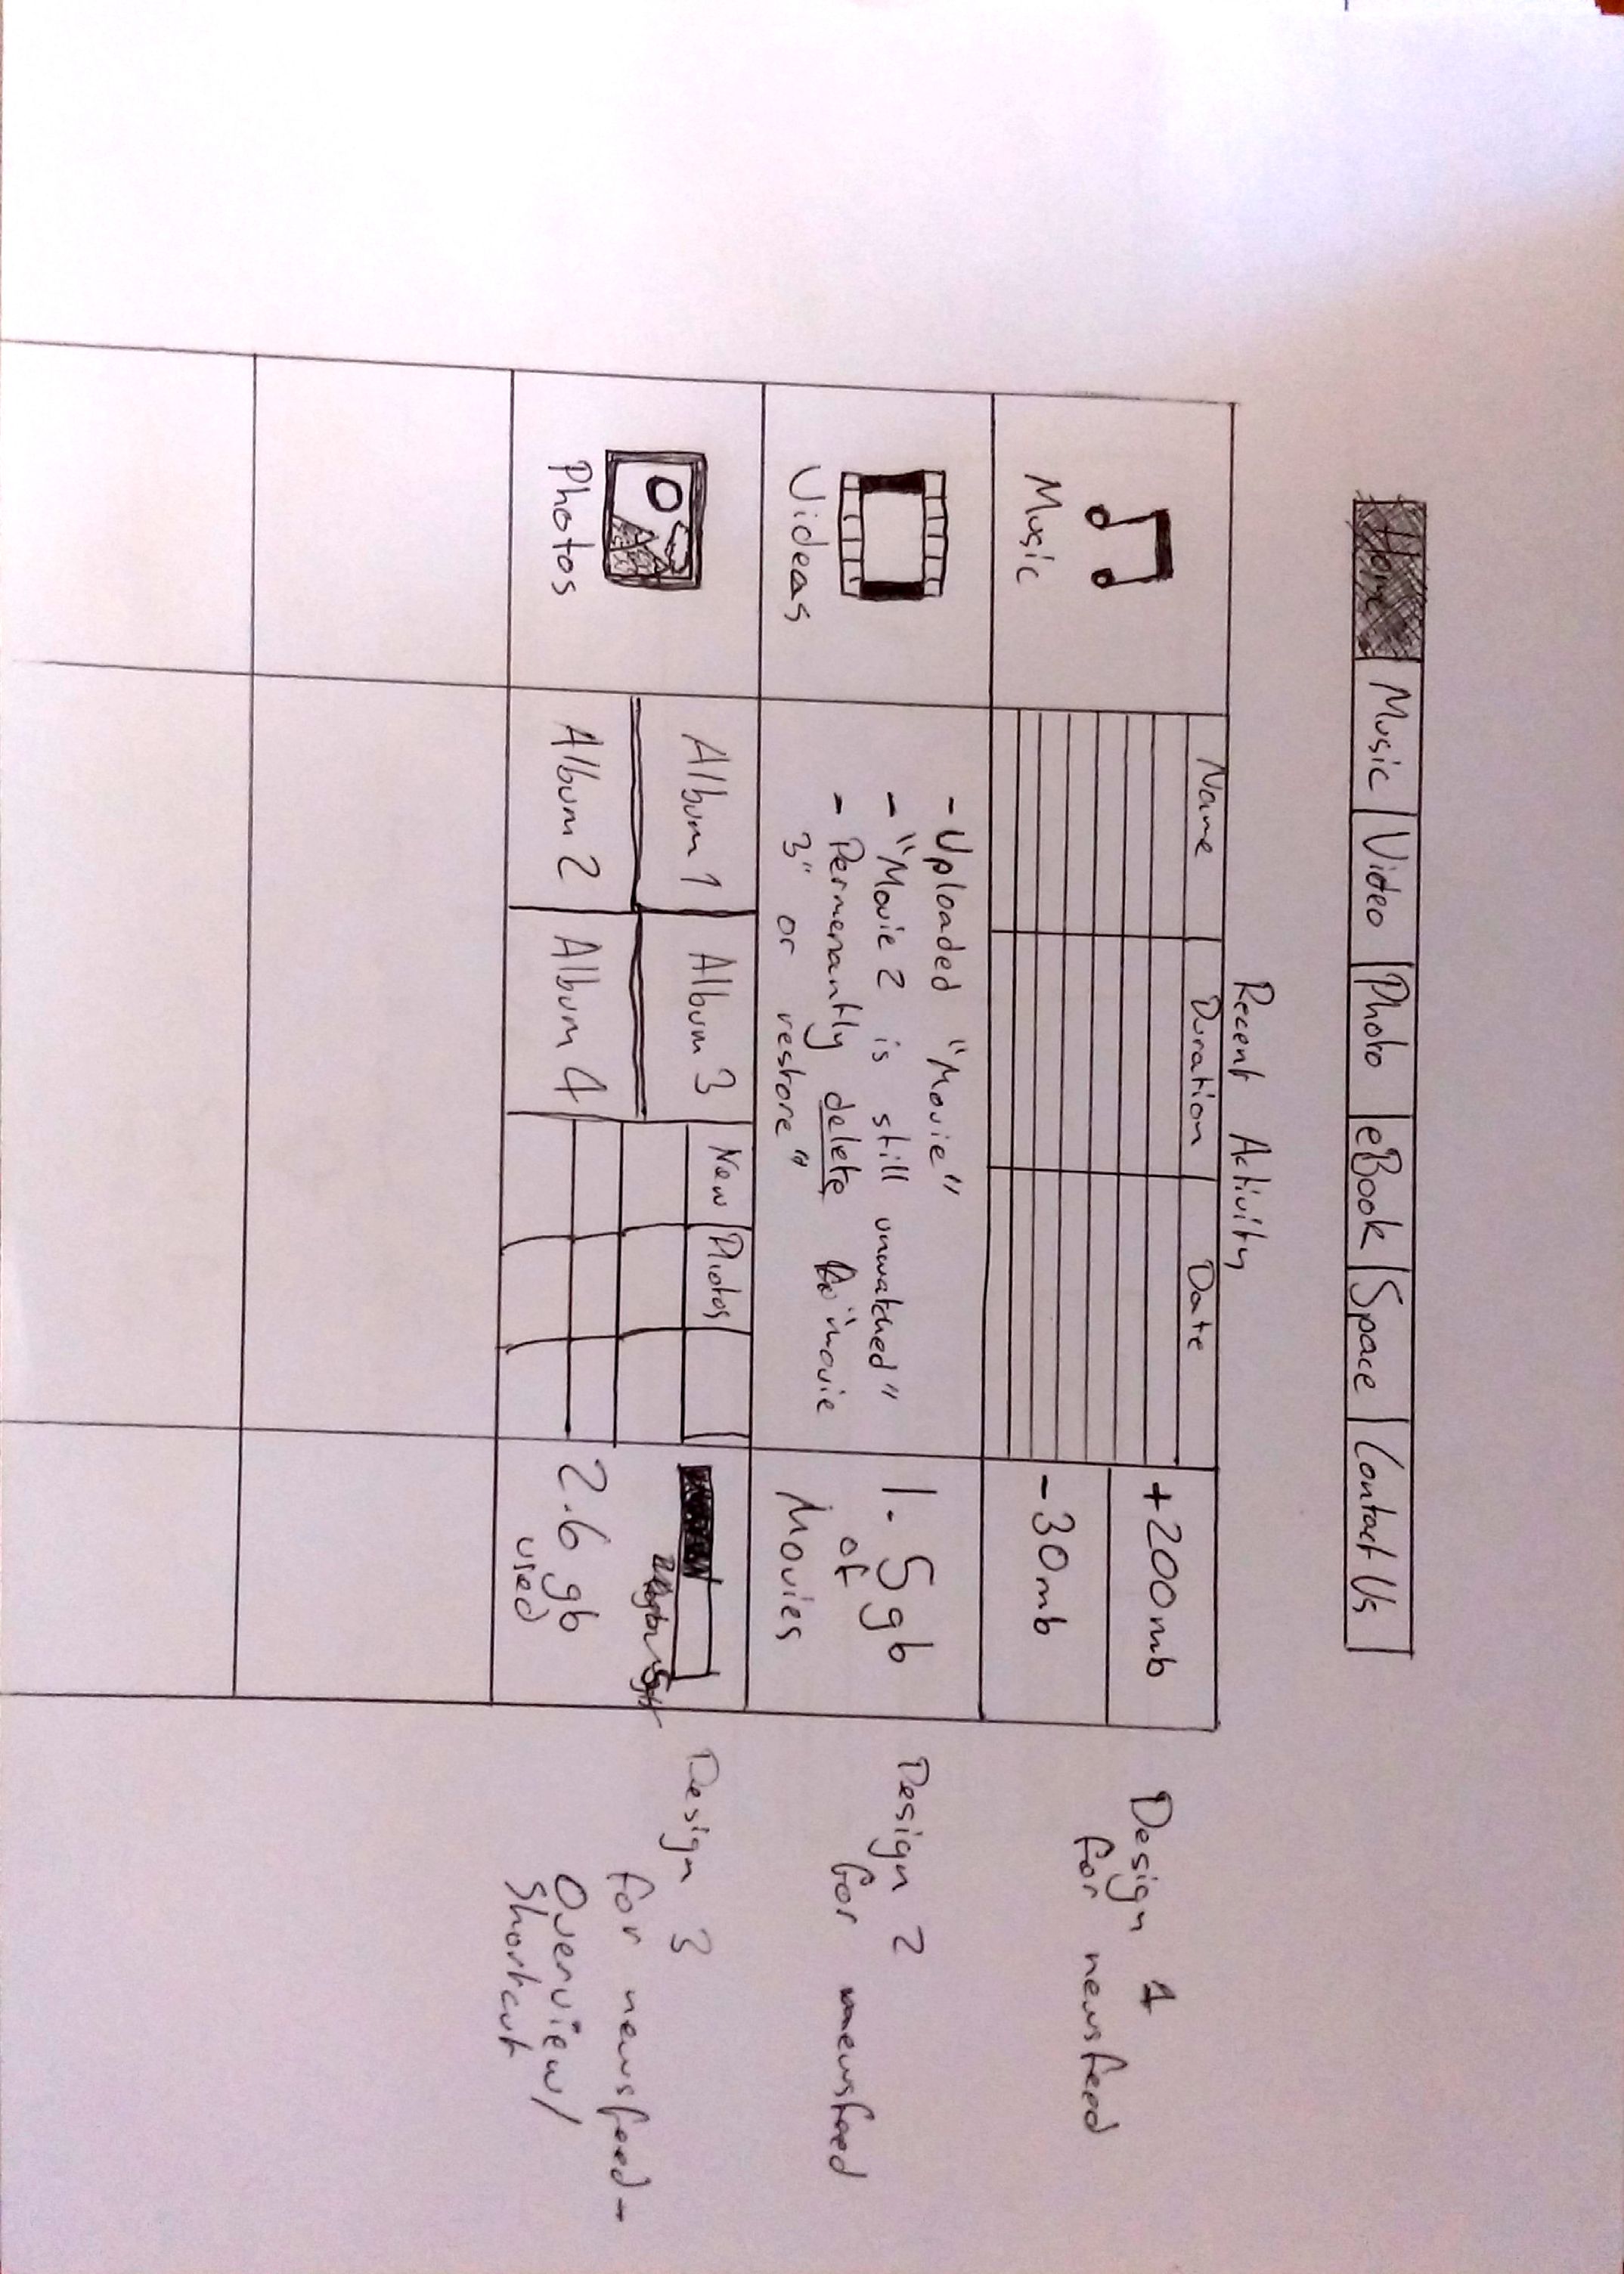 Home Music Video Photo eBook Space Contact Us
Recent Activity
Name Duration Date
Music
+200mb
-30mb
Design 1
for newsfeed
Videos
- Uploaded "Movie"
- "Movie 2 is still unwatched"
- Permenantly delete "movie
3" or restore"
1.5gb
of
Movies
Design 2
for newsfeed
Photos
Album 1 Album 3
Album 2 Album 4
New Photos
2.6 gb
used
Design 3
for newsfeed -
Overview/
Shortcut